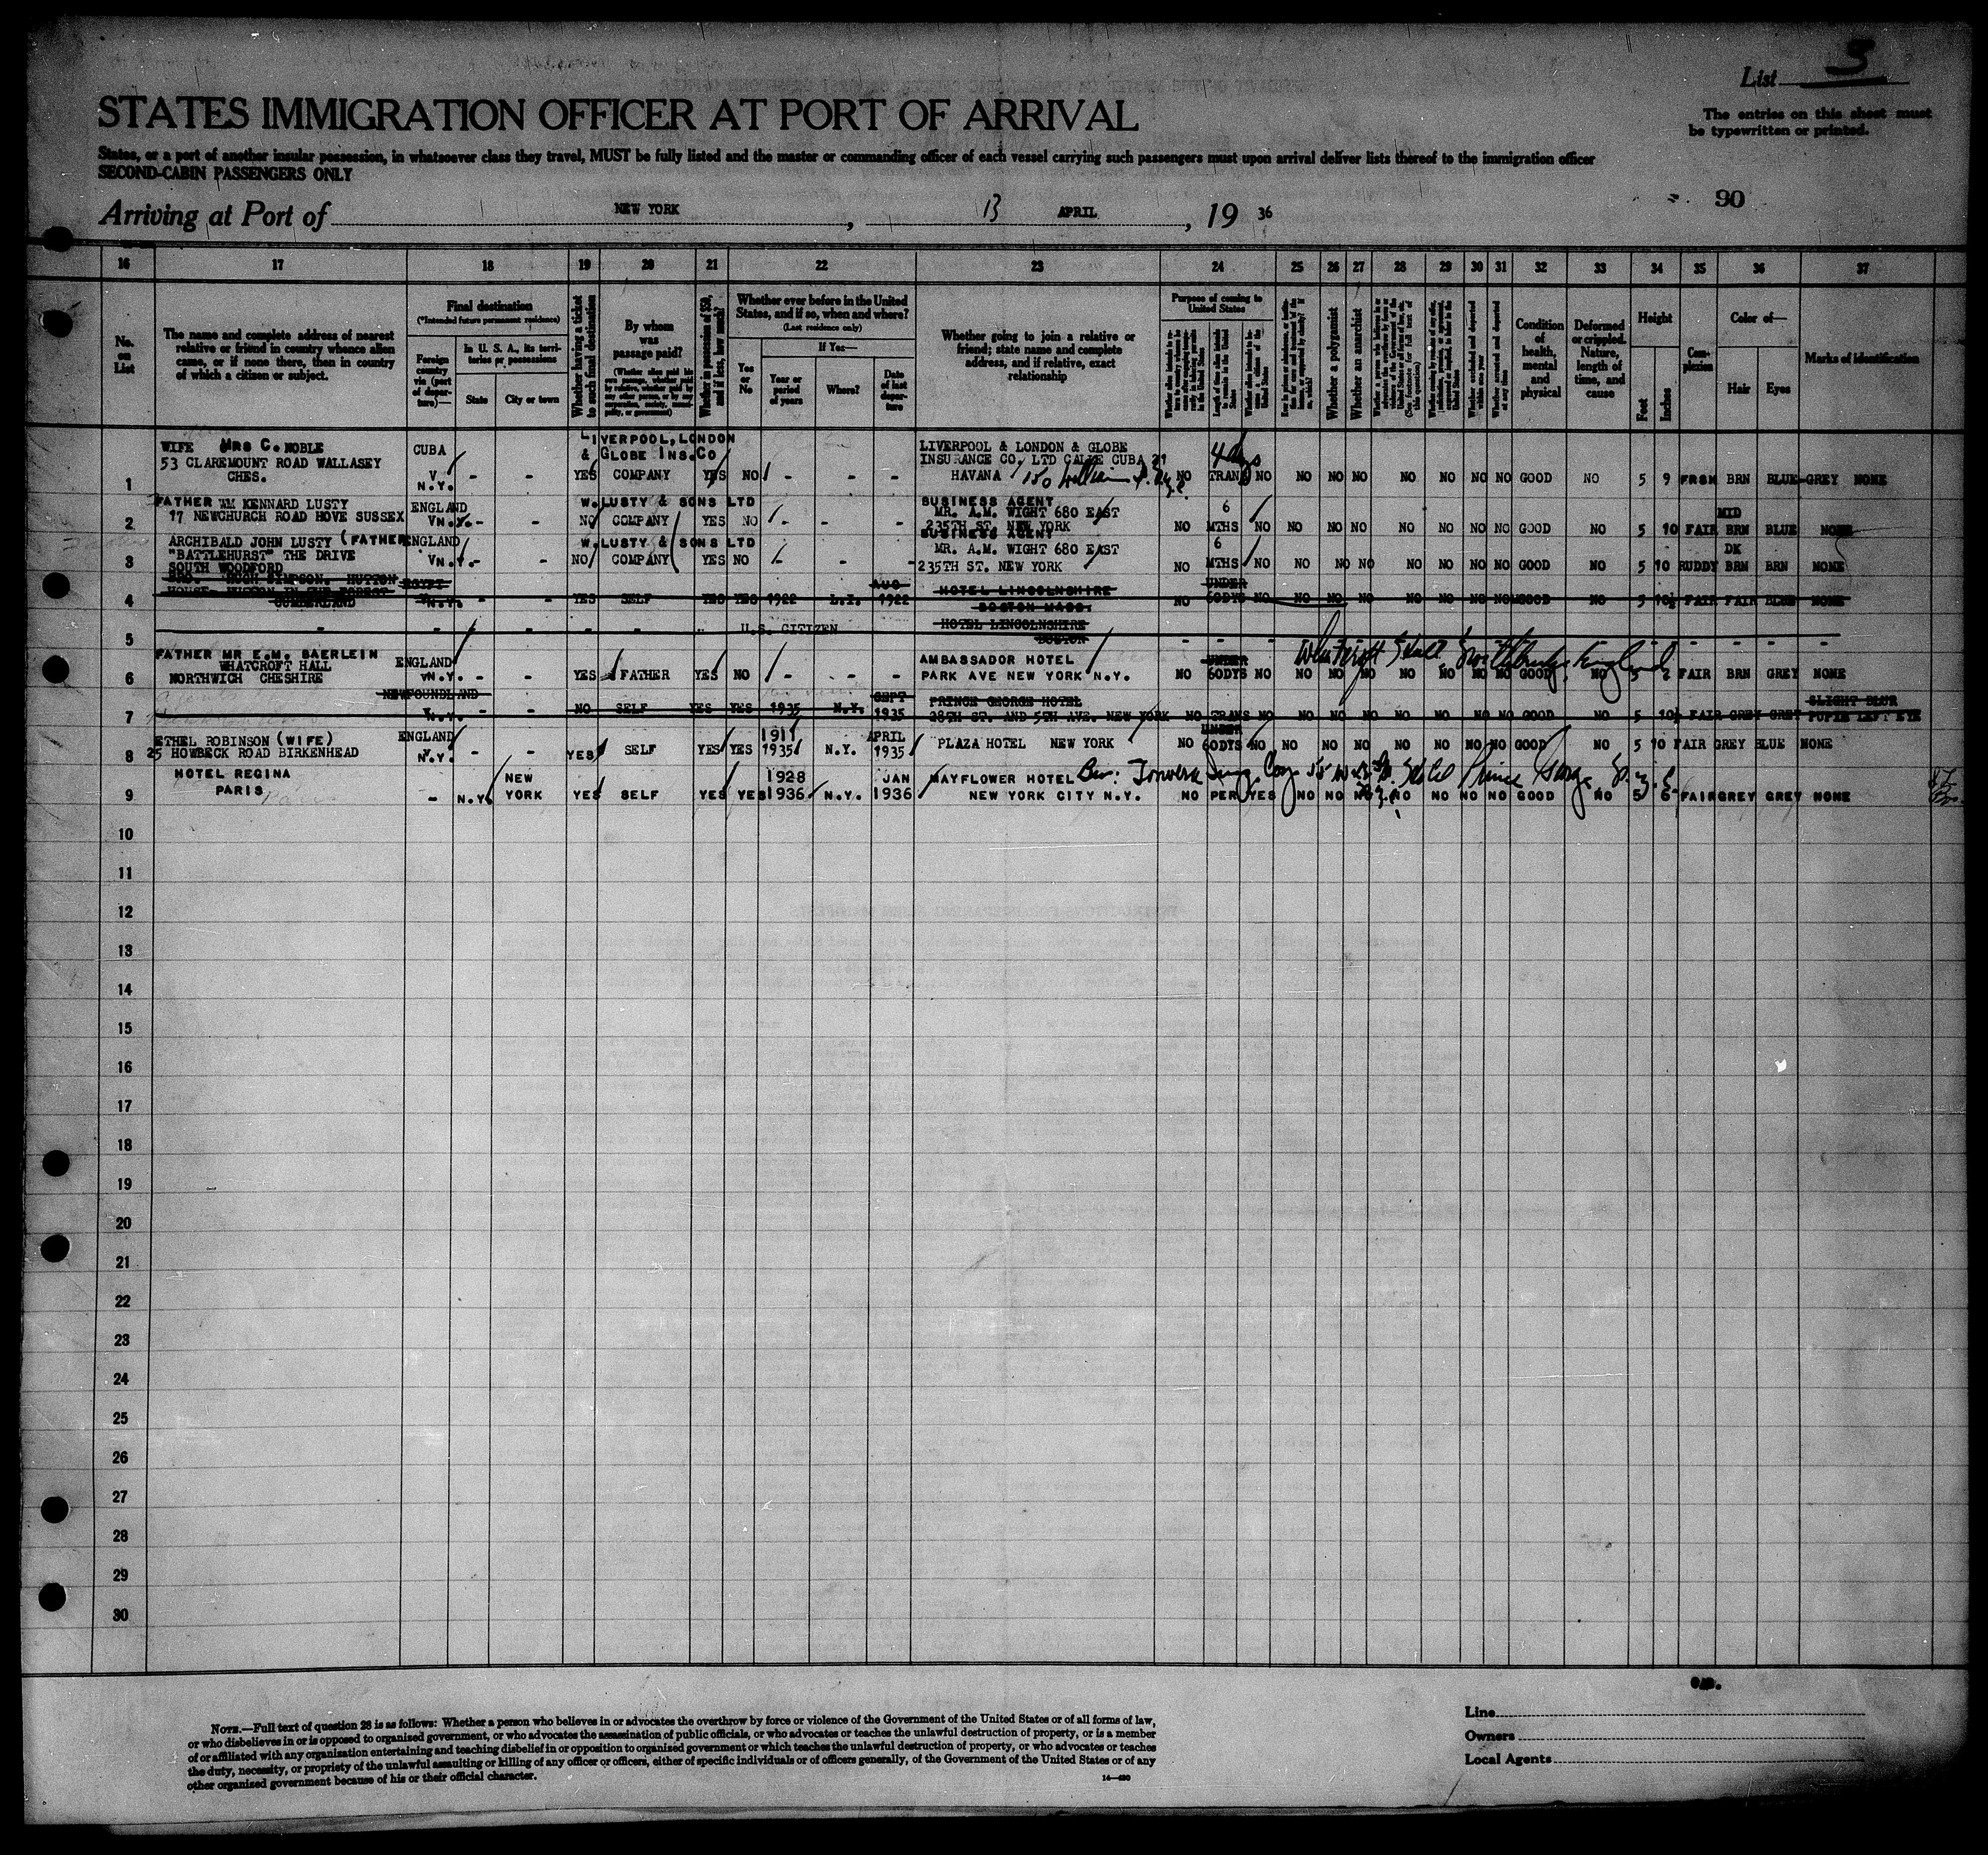 List 3
The entries on this sheet must
be typewritten or printed.
STATES IMMIGRATION OFFICER AT PORT OF ARRIVAL
States, or a port of another insular possession, in whatsoever class they travel, MUST be fully listed and the master or commanding officer of each vessel carrying such passengers must upon arrival deliver lists thereof to the immigration officer
SECOND-CABIN PASSENGERS ONLY
90
Arriving at Port of NEW YORK, 13 APRIL, 19 36
16 17 18 19 20 21 22 23 24 25 26 27 28 29 30 31 32 33 34 35 36 37
No. on List
The name and complete address of nearest relative or friend in country whence alien came, or if none there, then in country of which a citizen or subject.
Final destination
(*Intended future permanent residence)
Foreign country via (port of departure)—
In U. S. A., its territories or possessions
State
City or town
Whether having a ticket to such final destination
By whom was passage paid?
Whether in possession of $50, and if less, how much?
Whether ever before in the United States, and if so, when and where?
(Last residence only)
Yes or No
If Yes—
Year or period of years
Where?
Date of last departure
Whether going to join a relative or friend; state name and complete address, and if relative, exact relationship
Purpose of coming to United States
Whether a polygamist
Whether an anarchist
Condition of health, mental and physical
Deformed or crippled. Nature, length of time, and cause
Height
Feet
Inches
Complexion
Color of—
Hair
Eyes
Marks of identification
1 WIFE MRS C. NOBLE
53 CLAREMOUNT ROAD WALLASEY
CHES.
CUBA V N.Y. - -
LIVERPOOL, LONDON
& GLOBE INS.CO
YES COMPANY YES NO - - -
LIVERPOOL & LONDON & GLOBE
INSURANCE CO, LTD CALLE CUBA 21
HAVANA 150 William
4 dys
NO TRANS NO NO NO NO NO NO NO NO GOOD NO 5 9 FRSH BRN BLUE-GREY NONE
2 FATHER WM KENNARD LUSTY
17 NEWCHURCH ROAD HOVE SUSSEX
ENGLAND VN.Y. - -
W.LUSTY & SONS LTD
NO COMPANY YES NO - - -
BUSINESS AGENT
MR. A.M. WIGHT 680 EAST
235TH ST. NEW YORK
6
NO MTHS NO NO NO NO NO NO NO NO GOOD NO 5 10 FAIR MID BRN BLUE NONE
3 ARCHIBALD JOHN LUSTY (FATHER
"BATTLEHURST" THE DRIVE
SOUTH WOODFORD
ENGLAND VN.Y. - -
W.LUSTY & SONS LTD
NO COMPANY YES NO - - -
BUSINESS AGENT
MR. A.M. WIGHT 680 EAST
235TH ST. NEW YORK
6
NO MTHS NO NO NO NO NO NO NO NO GOOD NO 5 10 RUDDY DK BRN BRN NONE
4 BRO. HUGH SIMPSON. HUTTON
HOUSE HUTTON IN THE FOREST
CUMBERLAND
EGYPT V N.Y. - -
YES SELF YES YES 1922 L.I. AUG 1922
HOTEL LINCOLNSHIRE
BOSTON MASS.
UNDER
NO 60DYS NO NO NO NO NO NO NO NO GOOD NO 5 10½ FAIR FAIR BLUE NONE
5 - - - - - - - U.S. CITIZEN
HOTEL LINCOLNSHIRE
BOSTON
6 FATHER MR E.M. BAERLEIN
WHATCROFT HALL
NORTHWICH CHESHIRE
ENGLAND VN.Y. - -
YES FATHER YES NO - - -
AMBASSADOR HOTEL
PARK AVE NEW YORK N.Y.
Whatcroft Hall England
UNDER
NO 60DYS NO NO NO NO NO NO NO NO GOOD NO 5 2 FAIR BRN GREY NONE
7 NEWFOUNDLAND V N.Y. - -
NO SELF YES YES 1935 N.Y. SEPT 1935
PRINCE GEORGE HOTEL
28TH ST. AND 5TH AVE. NEW YORK
NO TRANS NO NO NO NO NO NO NO NO GOOD NO 5 10½ FAIR GREY GREY SLIGHT BLUR
PUPIL LEFT EYE
8 ETHEL ROBINSON (WIFE)
25 HOWBECK ROAD BIRKENHEAD
ENGLAND V N.Y. - -
YES SELF YES YES 1911 1935 N.Y. APRIL 1935
PLAZA HOTEL NEW YORK
UNDER
NO 60DYS NO NO NO NO NO NO NO NO GOOD NO 5 10 FAIR GREY BLUE NONE
9 HOTEL REGINA
PARIS
- N.Y. NEW YORK
YES SELF YES YES 1928 1936 N.Y. JAN 1936
MAYFLOWER HOTEL
NEW YORK CITY N.Y.
Prince George
NO PER YES NO NO NO NO NO NO NO GOOD NO 5 6 FAIR GREY GREY NONE
10
11
12
13
14
15
16
17
18
19
20
21
22
23
24
25
26
27
28
29
30
NOTE.—Full text of question 28 is as follows: Whether a person who believes in or advocates the overthrow by force or violence of the Government of the United States or of all forms of law,
or who disbelieves in or is opposed to organized government, or who advocates the assassination of public officials, or who advocates or teaches the unlawful destruction of property, or is a member
of or affiliated with any organization entertaining and teaching disbelief in or opposition to organized government or which teaches the unlawful destruction of property, or who advocates or teaches
the duty, necessity, or propriety of the unlawful assaulting or killing of any officer or officers, either of specific individuals or of officers generally, of the Government of the United States or of any
other organized government because of his or their official character.
14—430
Line
Owners
Local Agents